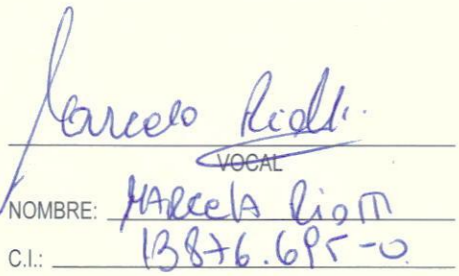 Marcela Riotti
VOCAL
NOMBRE: MARCELA Riotti
C.I.: 13876.695-0